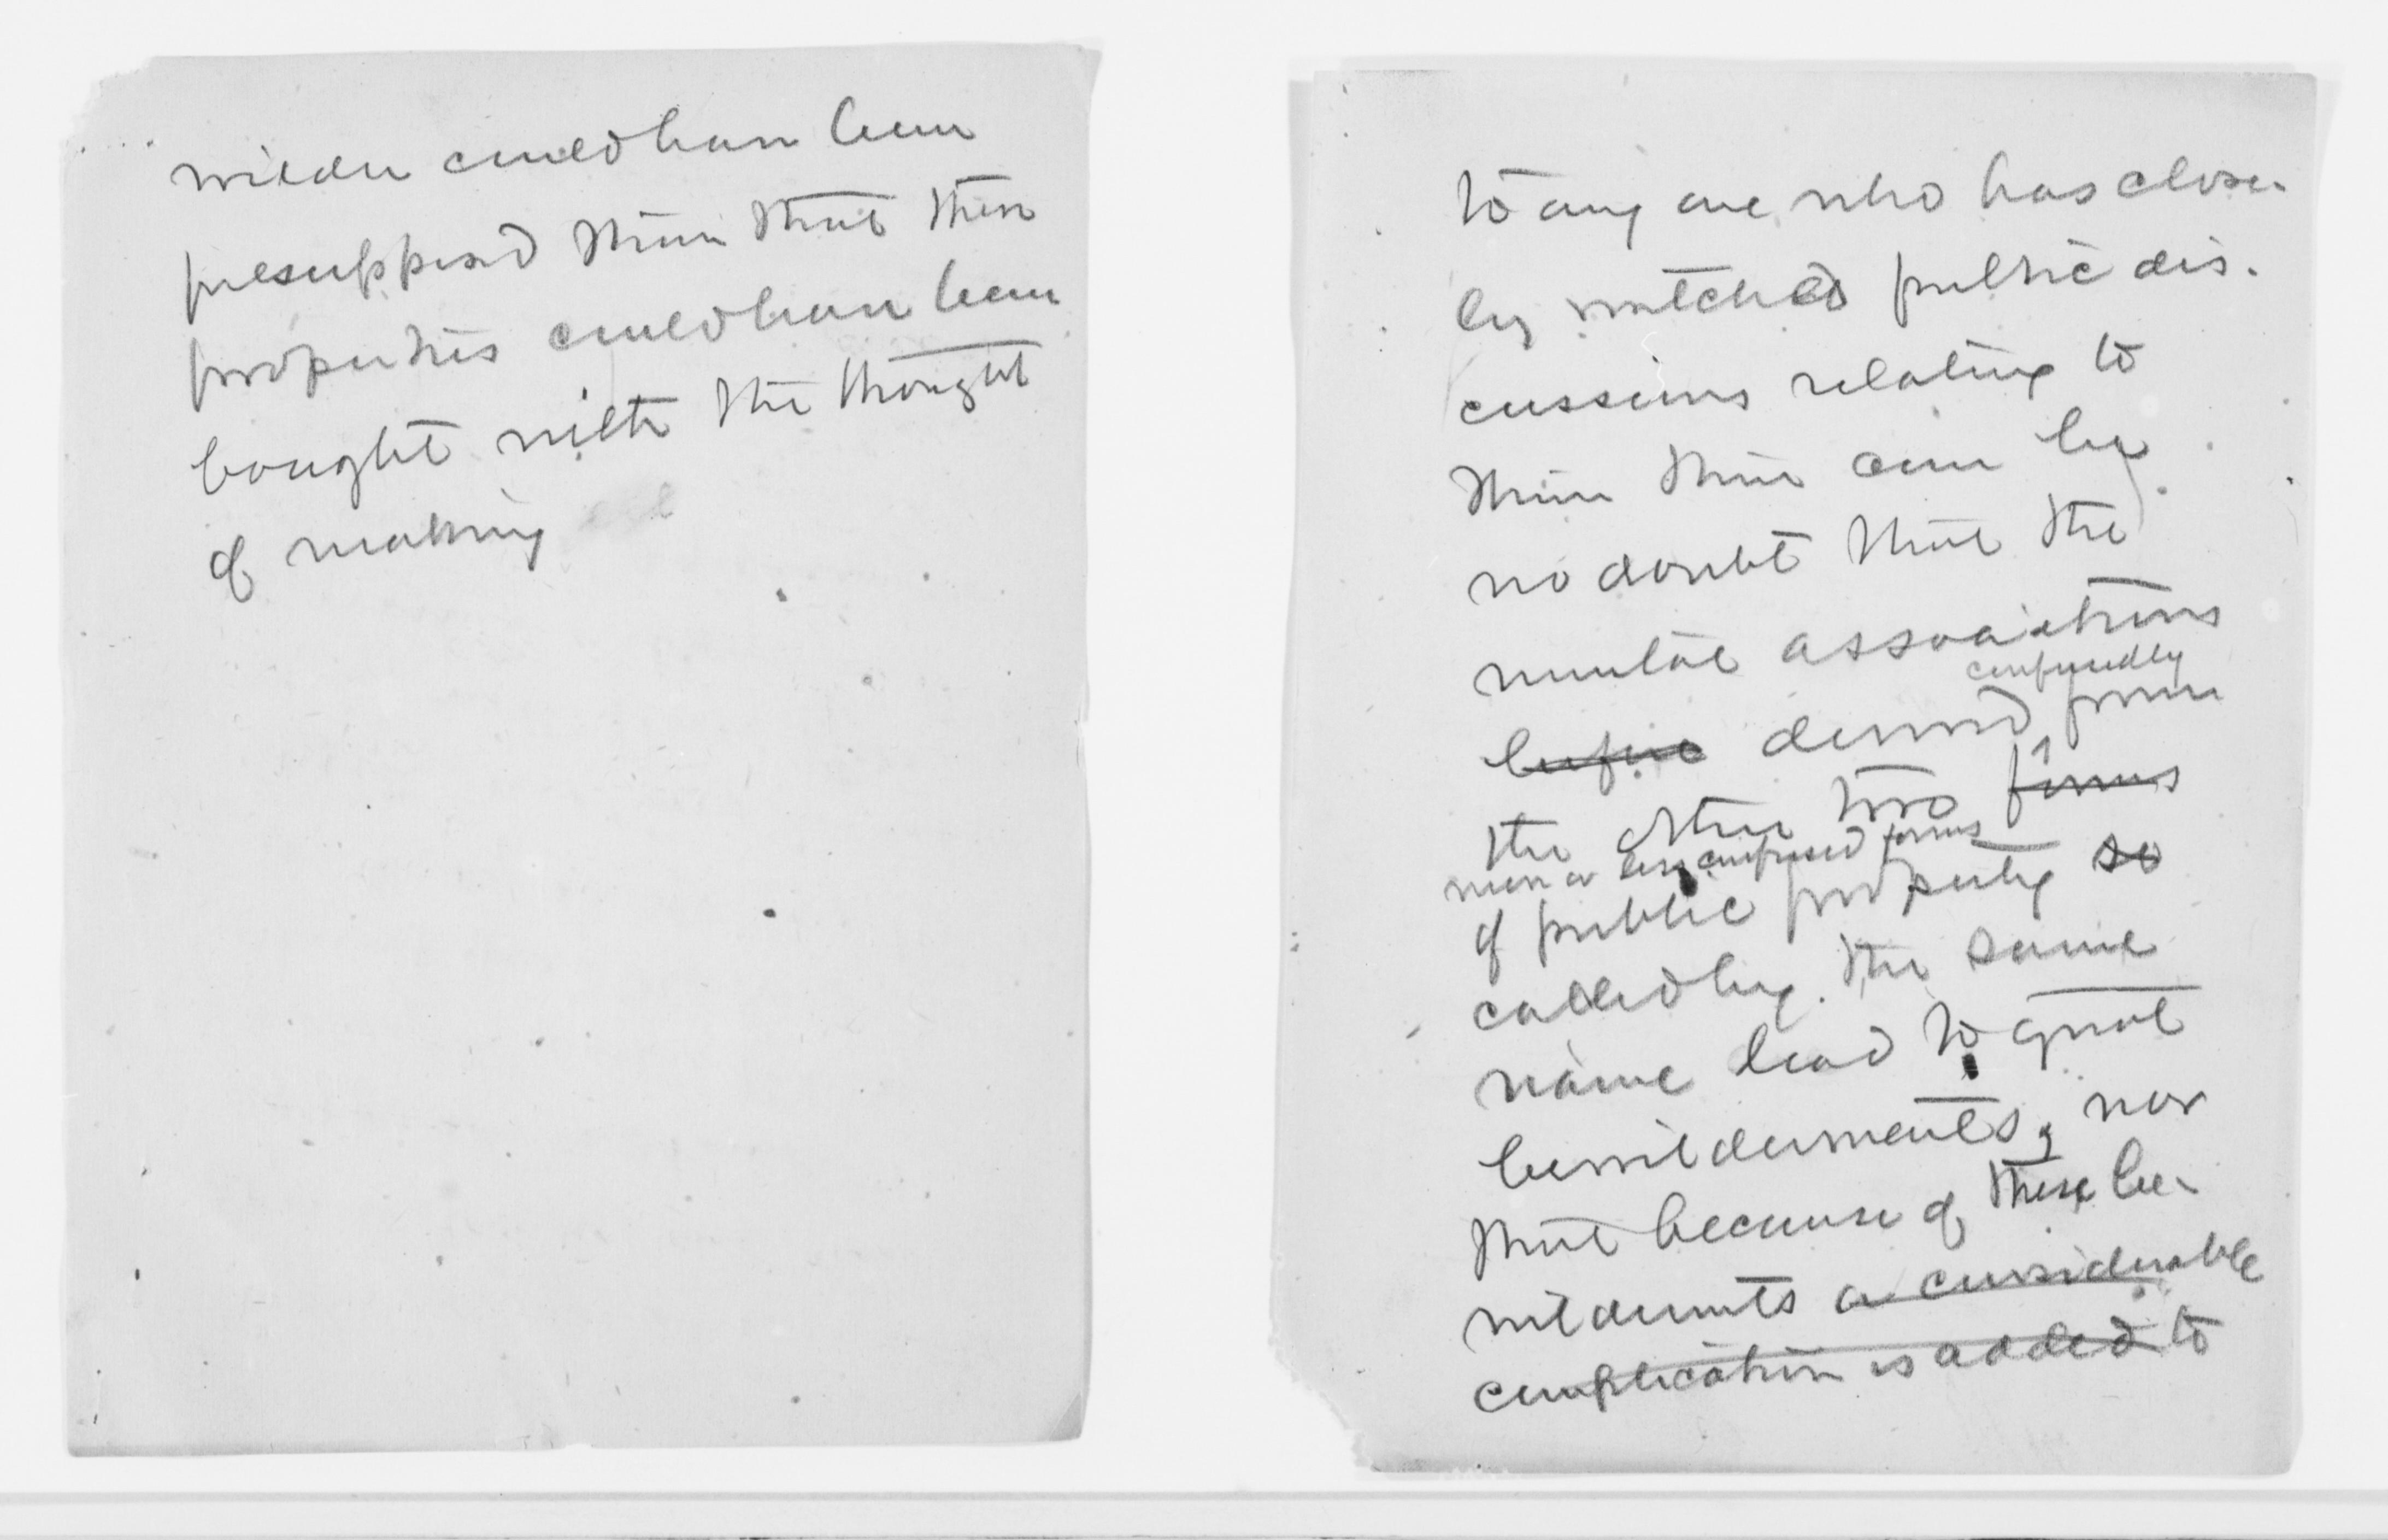 wilder could have been
presupposed than that these
properties could have been
bought with the thought
of making
To any one who has close-
ly watched public dis-
cussions relating to
them there can be
no doubt that the
mental associations
confusedly
before derived from
the other two forms
more or less confused forms
of public property so
called by the same
name lead to great
bewilderments, nor
that because of these be-
wilderments a considerable
complication is added to